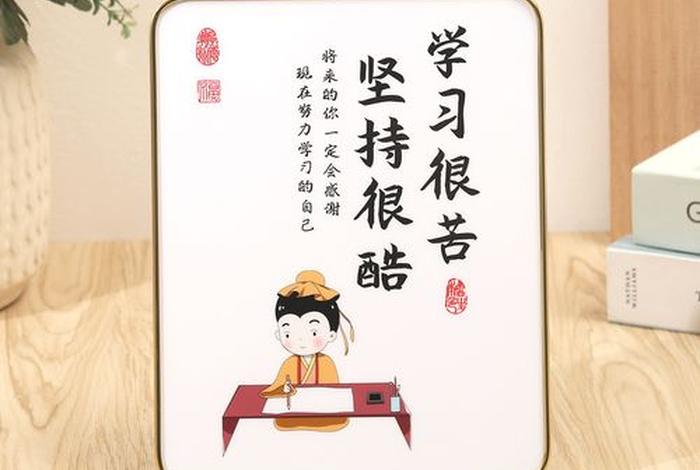 学习很苦
坚持很酷
将来的你一定会感谢
现在努力学习的自己
NATHAN
WILLIAMS